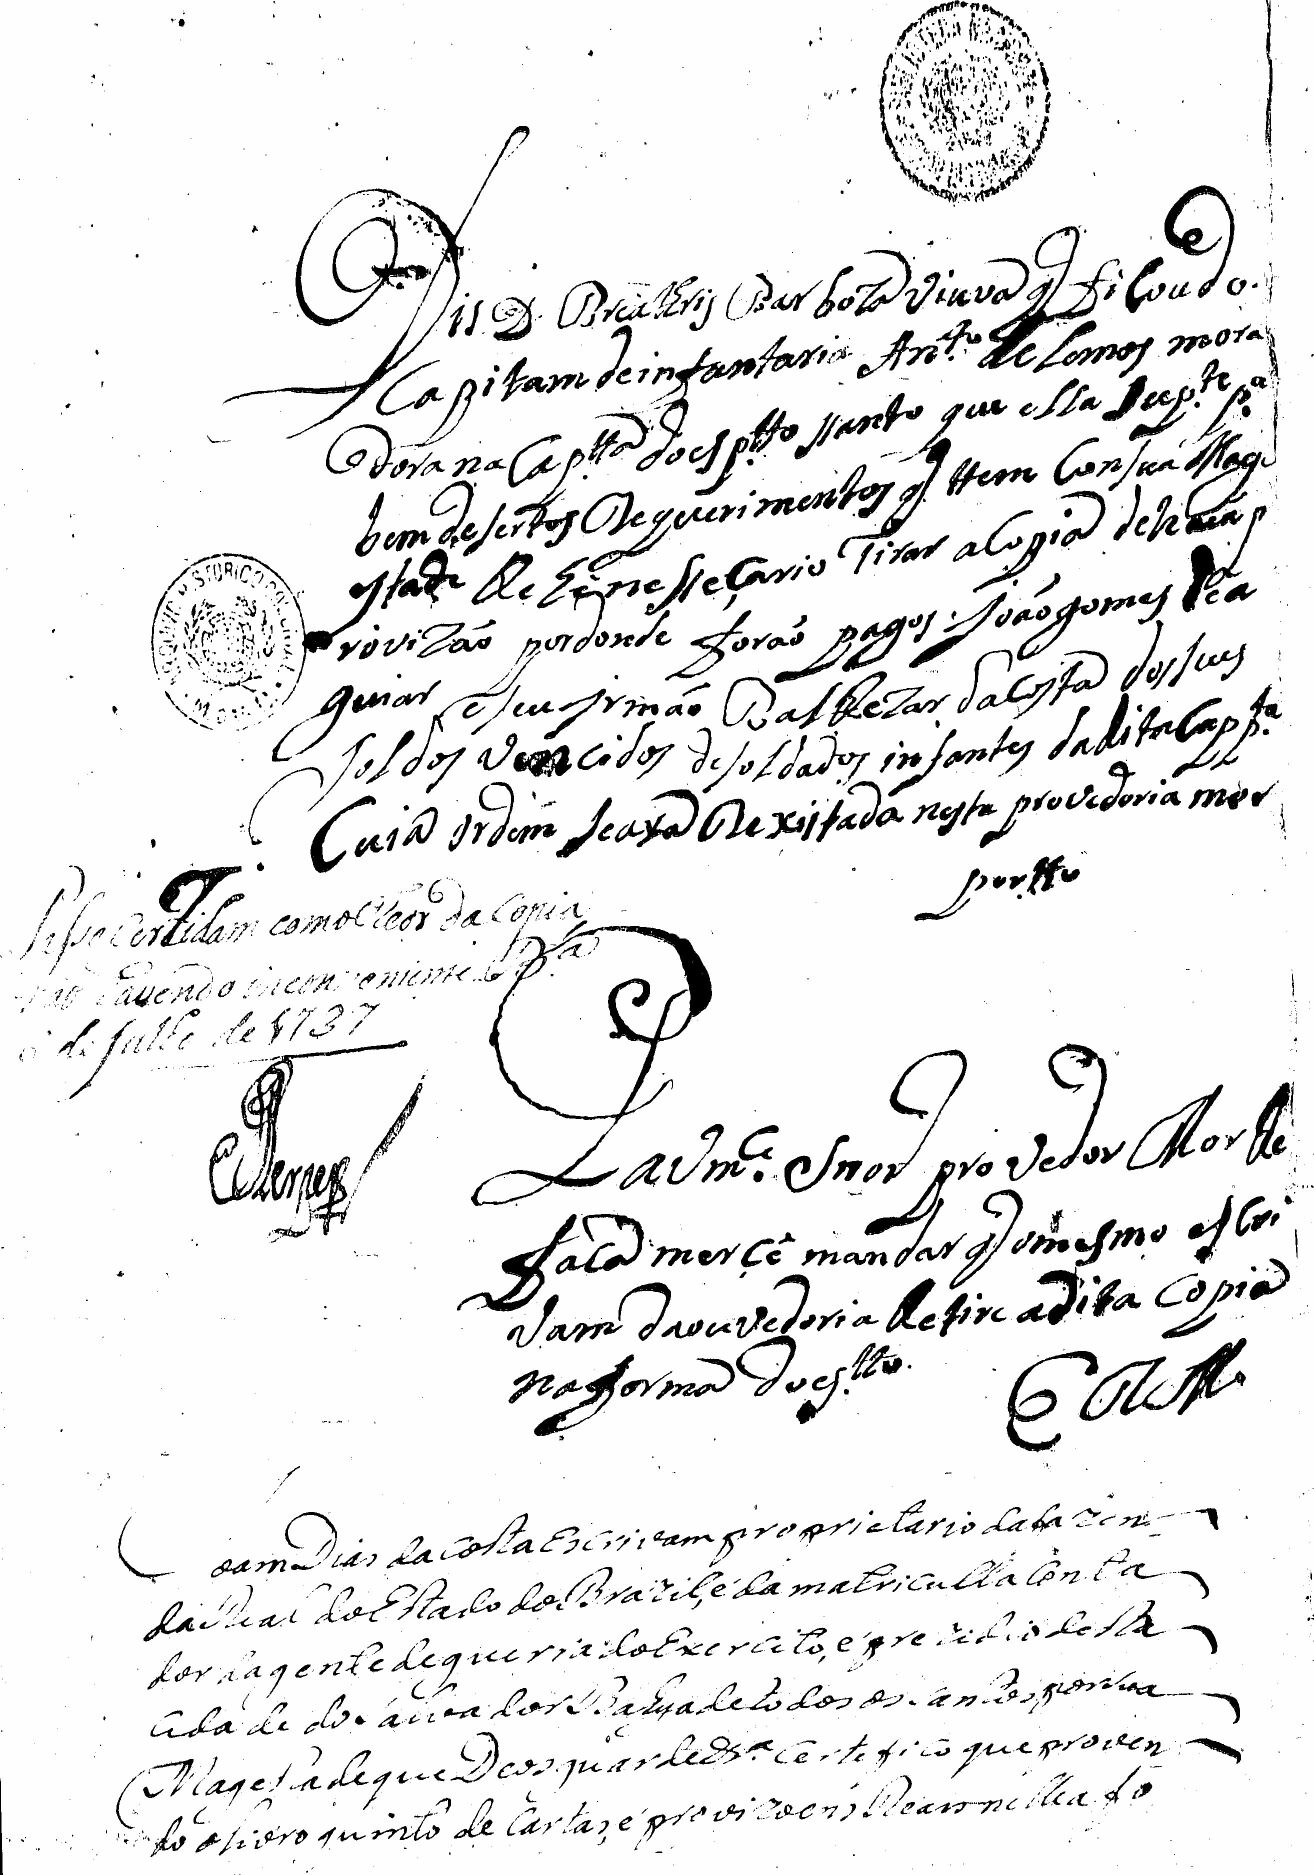 Dis D. Breatris Barboza viuva q̃ ficou do
Capitam de infantaria An.to de Lemos mora
dora na Cap.tta do esp.tto ssanto que ella Sup.te p.a
bem de sertos Requerimentos q̃ ttem Con sua Mag
stade lhe he nessecario tirar a Copia de huã p
rovizão por donde forão pagos João gomes de a
guiar e seu Irmão Baltezar da Costa dos seus
soldos vencidos de soldados infantes da dita Capp.ta
Cuja ordem se axa Rexistada nesta provedoria mor
por tto
Passe Certidam com o theor da Copia
não havendo inconveniente B.a
de Julho de 1737
P.a a Vm.ce Snor provedor Mor lhe
faca merçê mandar q̃ o mesmo escri
vam da ouvedoria lhe tire a dita Copia
na forma do es.tto
E R M.
oam Dias da Costa Escrivam proprietario da fazen
da Real do Estado do Brazil, e da matriculla Conta
dor da gente de guerra do Exercito, e prezidio desta
Cidade do Salvador Bahya de todos os Santos por sua
Magestade que Deos guarde &.a Certefico que proven
do o livro quinto de Cartas, e provizoens Rears nelle a fo